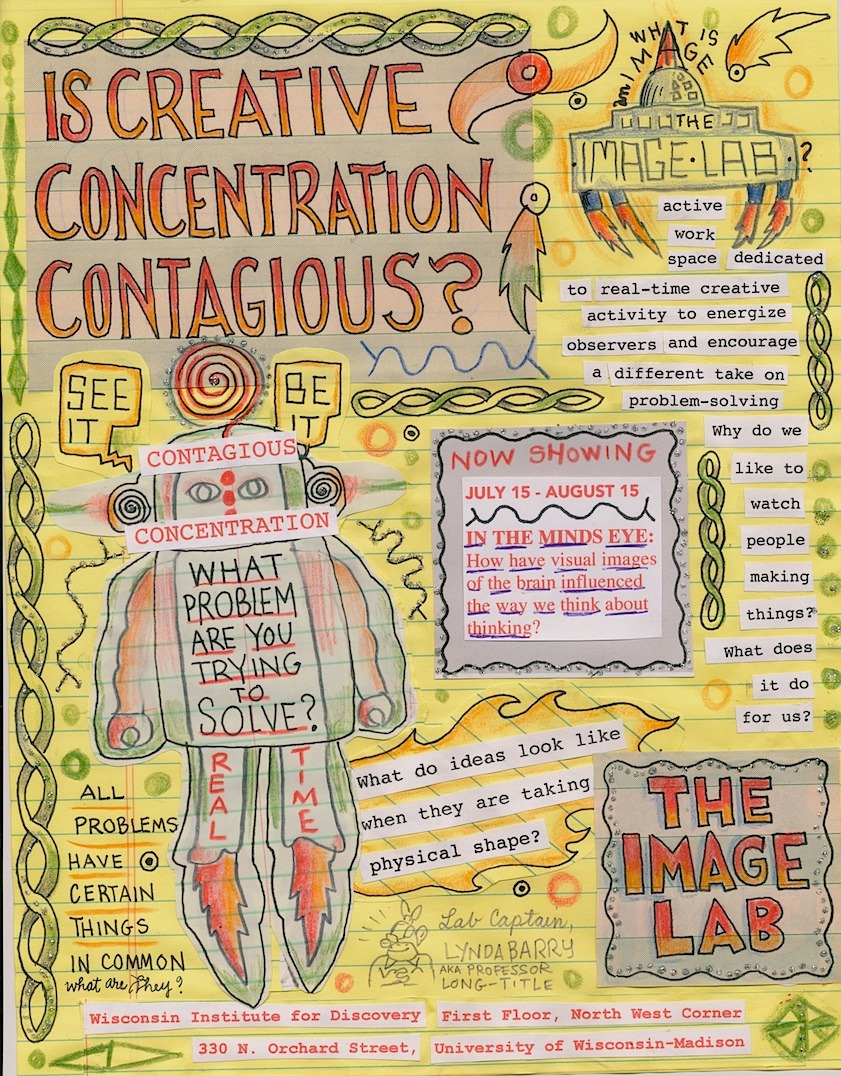 IS CREATIVE
CONCENTRATION
CONTAGIOUS?
WHAT IS
AN IMAGE
THE
IMAGE·LAB?
active
work
space dedicated
to real-time creative
activity to energize
observers and encourage
a different take on
problem-solving
Why do we
like to
watch
people
making
things?
What does
it do
for us?
SEE
IT
BE
IT
CONTAGIOUS
CONCENTRATION
WHAT
PROBLEM
ARE YOU
TRYING
TO
SOLVE?
REAL
TIME
NOW SHOWING
JULY 15 - AUGUST 15
IN THE MINDS EYE:
How have visual images
of the brain influenced
the way we think about
thinking?
What do ideas look like
when they are taking
physical shape?
ALL
PROBLEMS
HAVE
CERTAIN
THINGS
IN COMMON
what are they?
THE
IMAGE
LAB
Lab Captain,
LYNDA BARRY
AKA PROFESSOR
LONG-TITLE
Wisconsin Institute for Discovery First Floor, North West Corner
330 N. Orchard Street, University of Wisconsin-Madison